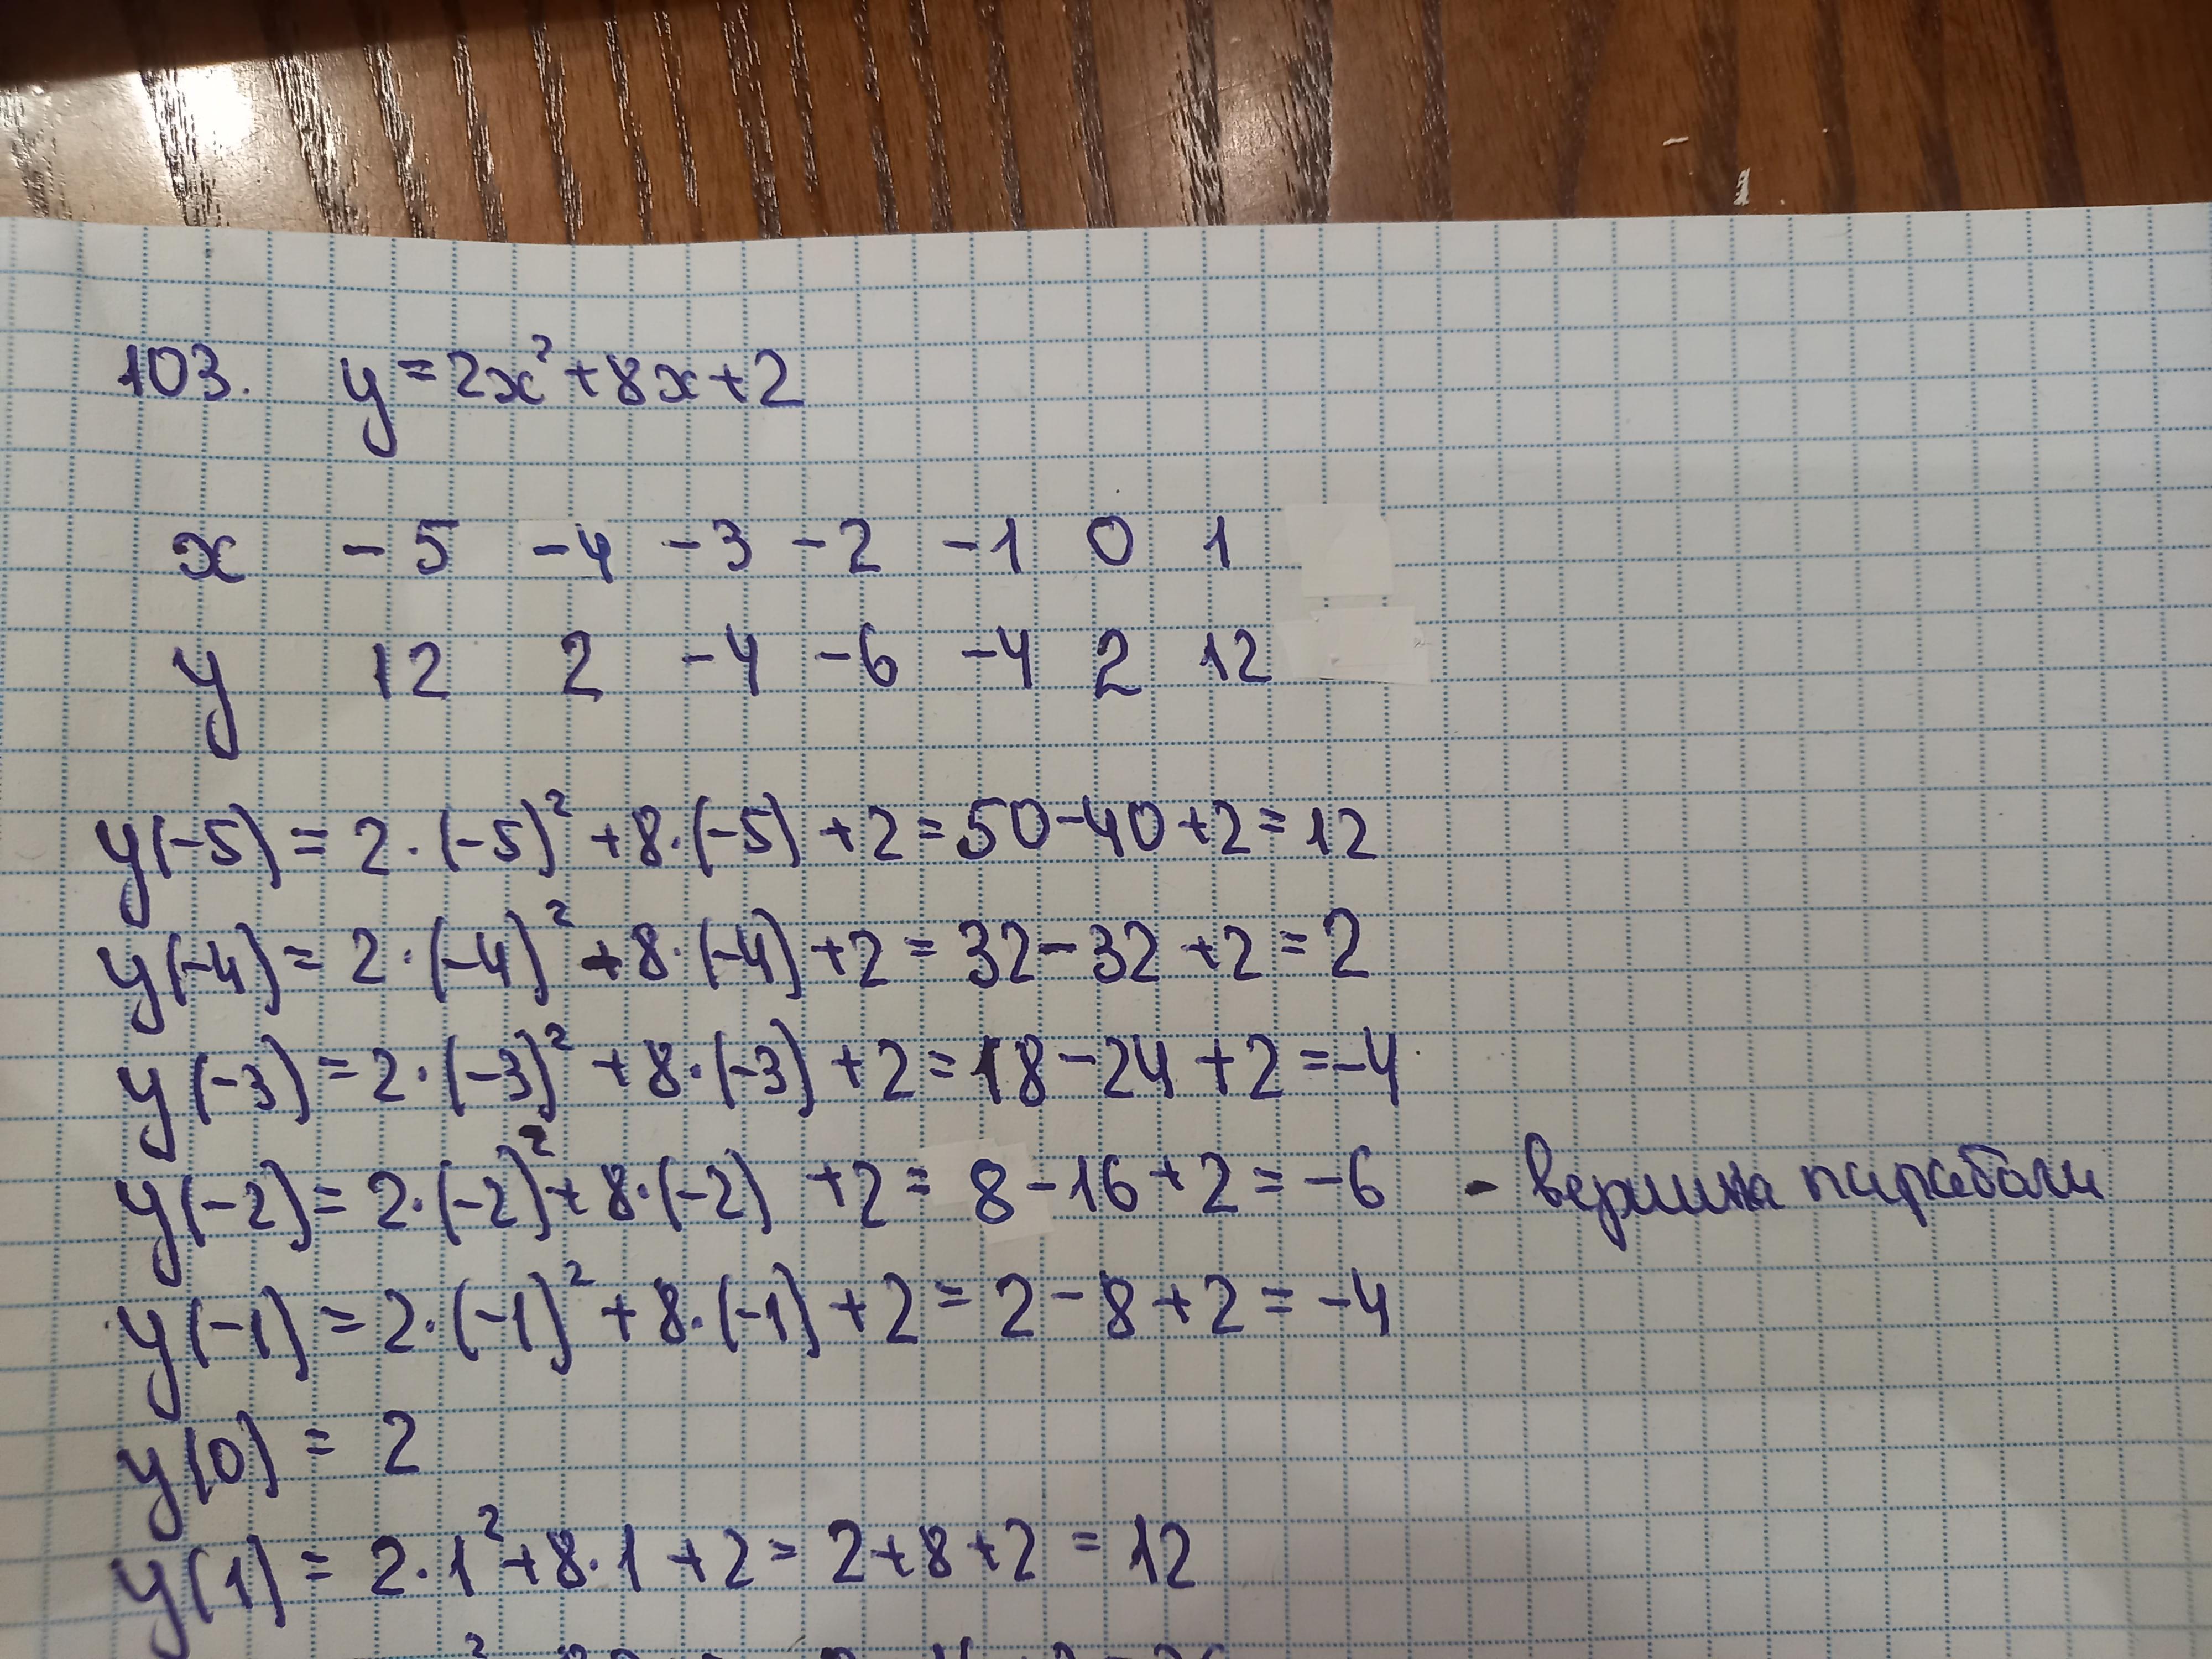 103. y=2x²+8x+2
x -5 -4 -3 -2 -1 0 1
y 12 2 -4 -6 -4 2 12
y(-5)=2·(-5)²+8·(-5)+2=50-40+2=12
y(-4)=2·(-4)²+8·(-4)+2=32-32+2=2
y(-3)=2·(-3)²+8·(-3)+2=18-24+2=-4
y(-2)=2·(-2)²+8·(-2)+2=8-16+2=-6 - вершина параболи
y(-1)=2·(-1)²+8·(-1)+2=2-8+2=-4
y(0)=2
y(1)=2·1²+8·1+2=2+8+2=12